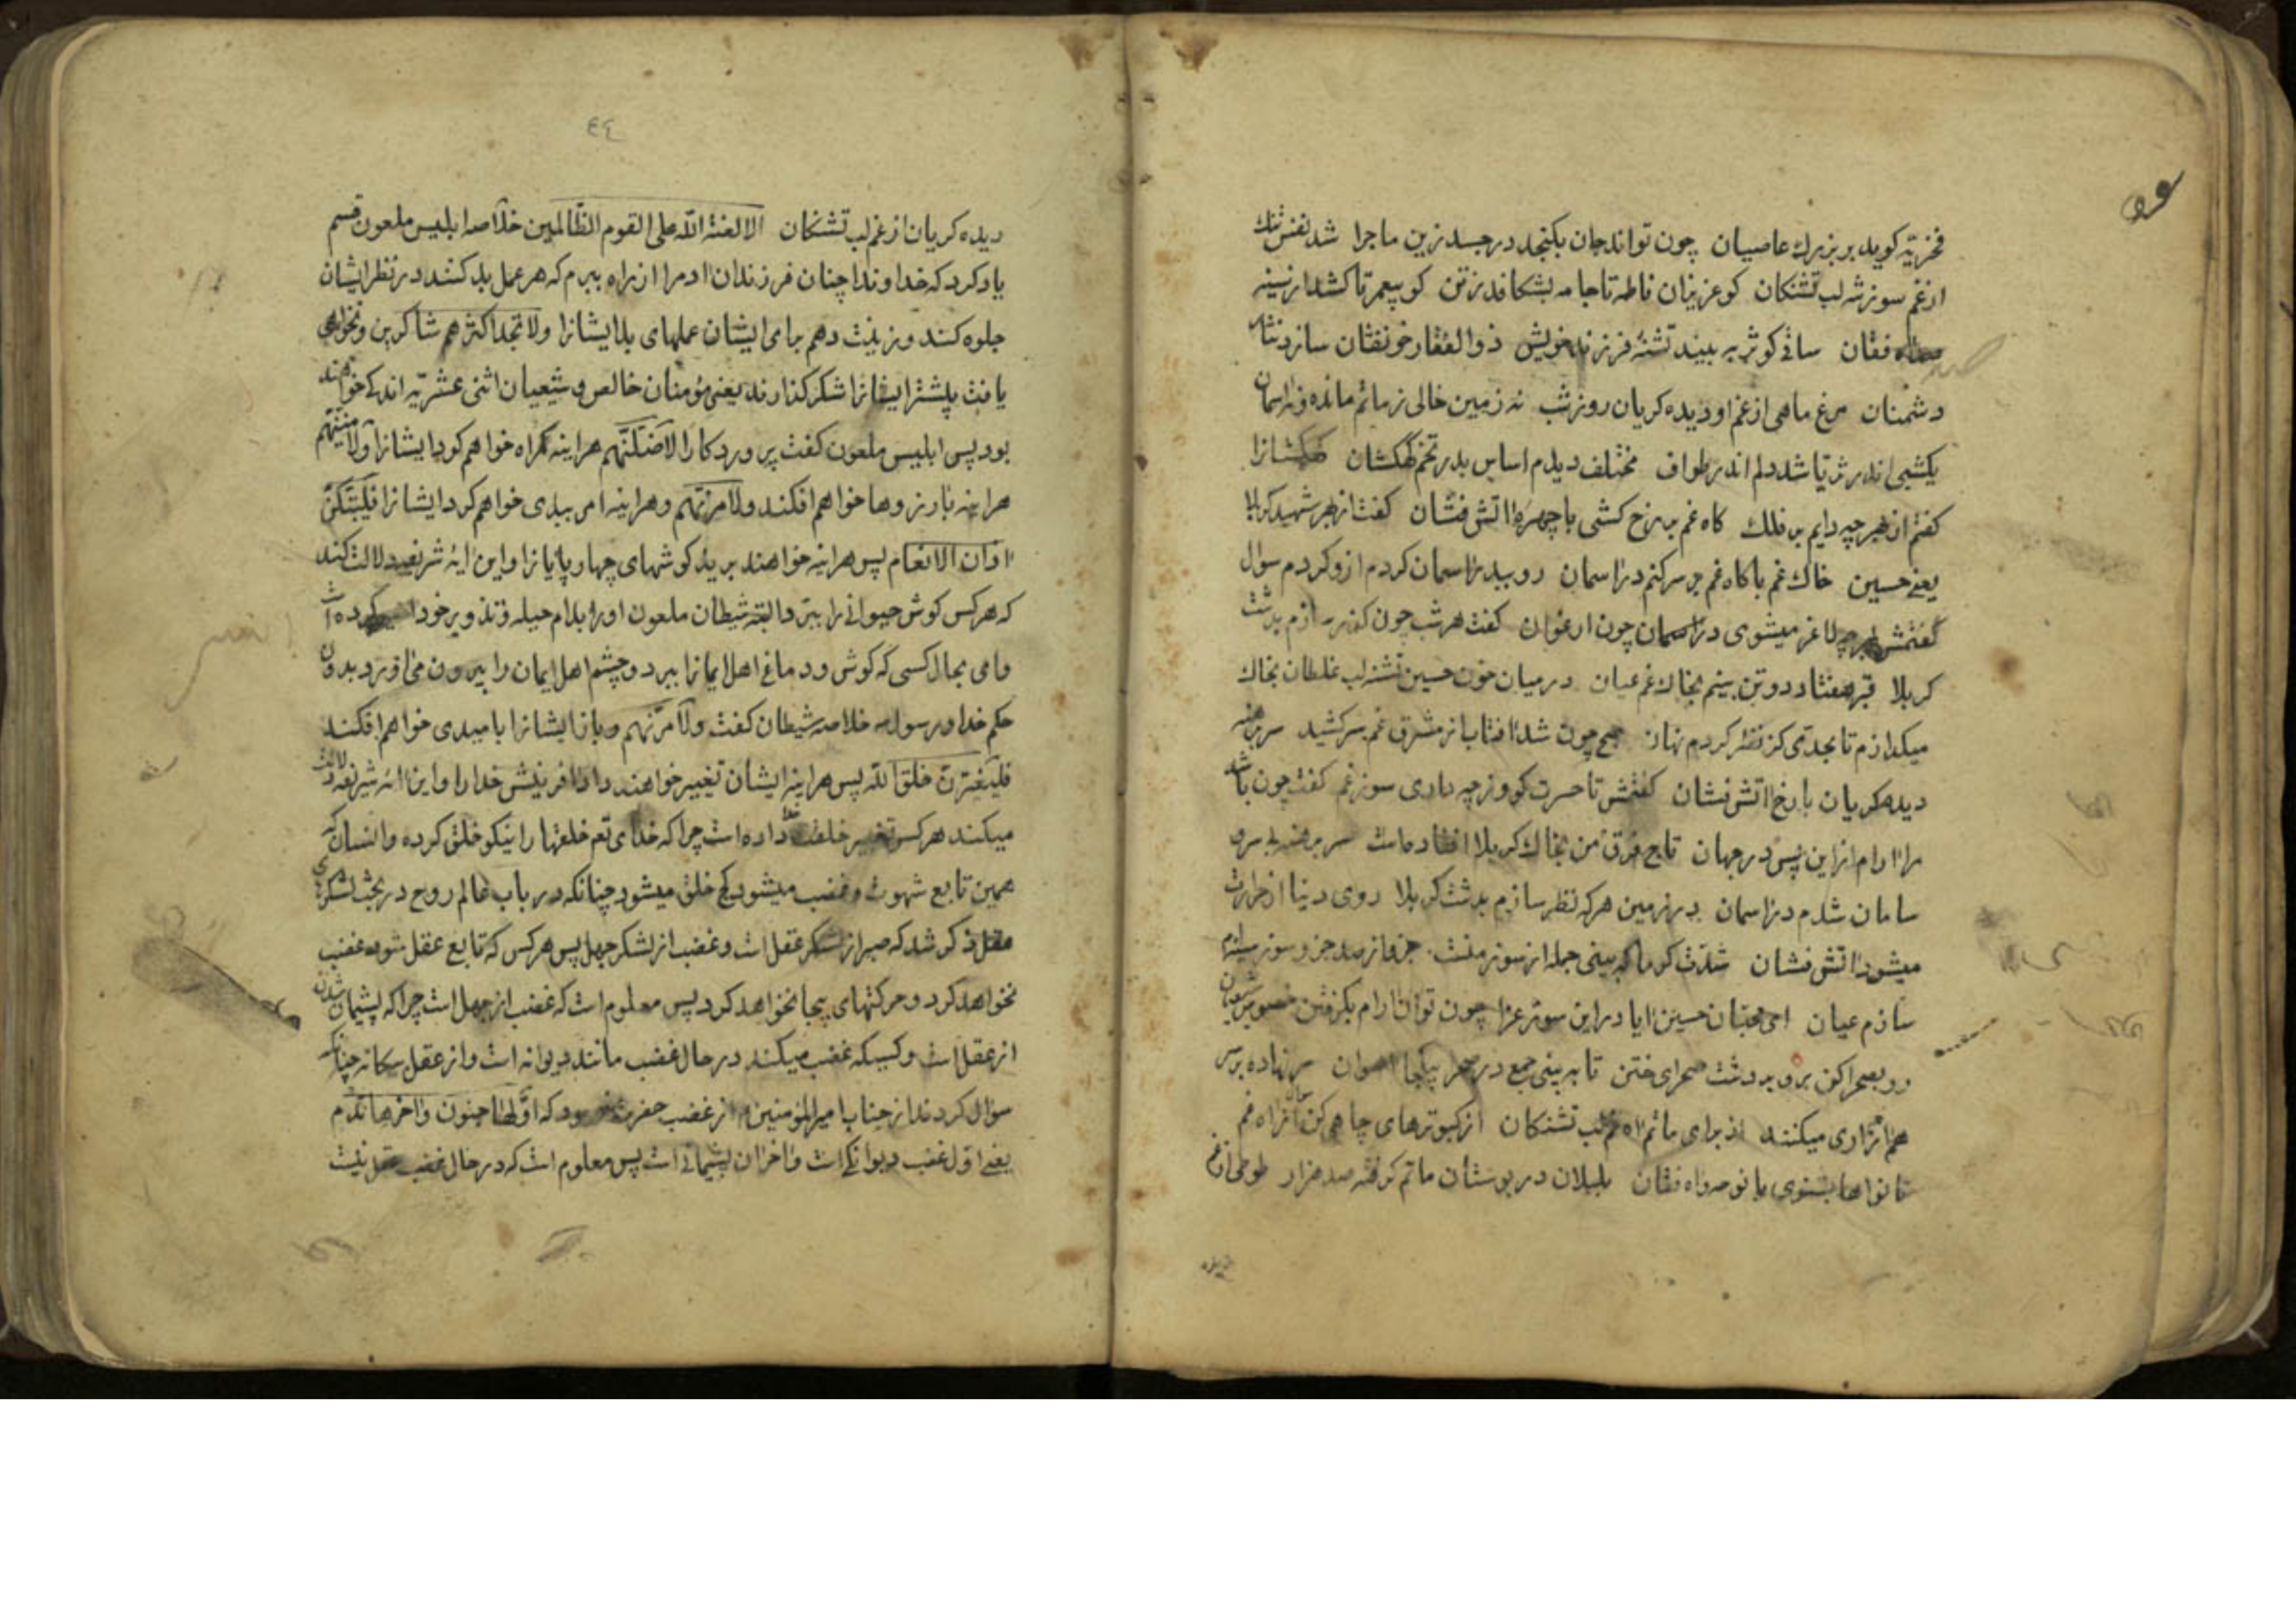 فخزیّه کوید بر بزرك عاصیان چون تواند جان بکنجد در جسد زین ماجرا شد نفس تنك
از غم سوزش لب تشنکان کو عزیزان فاطمه تا جامه بشکافد زتن کو پیعمر تا کشد از سینه
فقان ساقی کوثر به بیند تشنه فرزند خویش ذوالفقار خونفشان سازد نثار
دشمنان مرغ ماهی از غم او دیده کریان روز شب نه زمین خالی ز ماتم مانده و نه اسمان
یکشبی اندر ثریا شد دلم اندر طواف مختلف دیدم اساس بدر تخم کهکشان کهکشانرا
کفتم از بهر چه دایم بر فلك کاه غم برزخ کشی با چهرهٔ اتش فشان کفت از بهر شهید کربلا
یعنے حسین خاك غم با کاه غم بر سر کنم در اسمان رو ببدر اسمان کردم از و کردم سوال
کفتمش بهر چه لاغر میشوی در اسمان چون ارغوان کفت هر شب چون کذر سازم بدشت
کربلا قبر هفتاد دو تن بینم بخاك غم عیان در میان خون حسین تشنه لب غلطان بخاك
میکدازم تا بحدّی کز نظر کردم نهان صبح چون شد افتاب از مشرق غم سر کشید سر برهنه
دیده کریان با رخ اتش فشان کفتمش تا حسرت کو و ز چه داری سوز غم کفت چون باشد
مرا ارام از این پس در جهان تاج فرق من بخاك کربلا افتاده است سر برهنه بی سر و
سامان شدم در اسمان در زمین هر که نظر سازم بدشت کربلا روی دینا از حرارت
میشود اتش فشان شدّت کرما که بینی جمله از سوز منست جزو از صد جزو سوز سینه ام
سازم عیان ای محبّان حسین ایا در این سوز عزا چون توان ارام بکرفتن خصوص شیعیان
رو بصحرا کن برو بر دشت صحرای ختن تا ببینی جمع در صحر یکجا اهوان سر نهاده بر سر
هم زاری میکنند از برای ماتم شاه غم لب تشنکان از کبوترهای چاهی کن سوال از راه غم
تا نواها بشنوی با نوحه و اه فقان بلبلان در بوستان ماتم کرفته صد هزار طوطی از غم
دیده
٤٤
دیده کریان از غم لب تشنکان الا لعنة اللّه علی القوم الظّالمین خلاصه ابلیس ملعون قسم
یاد کرد که خداوندا چنان فرزندان ادمرا از راه ببرم که هر عمل بد کنند در نظر ایشان
جلوه کند و زینت دهم برای ایشان عملهای بد ایشانرا ولا تجد اکثرهم شاکرین و نخواهی
یافت بیشتر ایشانرا شکر کذارنده یعنی مؤمنان خالص و شیعیان اثنی عشریّه اندکے خواهند
بود پس ابلیس ملعون کفت پروردکارا لاضلّنّهم هراینه کمراه خواهم کرد ایشانرا ولامنّینّهم
هراینه بارزوها خواهم افکند ولامرنّهم وهراینه امر ببدی خواهم کرد ایشانرا فلیبتّکنّ
اذان الانعام پس هراینه خواهند برید کوشهای چهارپایانرا و این ایهٔ شریفه دلالت کند
که هر کس کوش حیوانے را ببرّد البته شیطان ملعون اورا بدام حیله و تذویر خود کرده است
وای بحال کسی که کوش و دماغ اهل ایمانرا ببرد و چشم اهل ایمان را بیرون می اورد بدون
حکم خدا و رسول خلاصه شیطان کفت ولامرنّهم و باز ایشانرا بامیدی خواهم افکند
فلیغیّرنّ خلق اللّه پس هراینه ایشان تغییر خواهند داد افرینش خدارا و این ایه شریفه دلالت
میکند هر کس تغییر خلقت داده است چرا که خدای تعم خلقتها را نیکو خلق کرده و انسان که
همین تابع شهوت و غضب میشود کج خلق میشود چنانکه در باب عالم روح در بحث لشکرهای
عقل ذکر شد که صبر از لشکر عقل است و غضب از لشکر جهل پس هر کس که تابع عقل شود غضب
نخواهد کرد و حرکتهای بیجا نخواهد کرد پس معلوم است که غضب از جهل است چرا که پشیمان شدن
از عقل است و کسیکه غضب میکند در حال غضب مانند دیوانه است و از عقل بیکانه چنانکه
سؤال کردند از جناب امیرالمؤمنین از غضب حضرت فرمود که اوّلها جنون واخرها ندم
یعنے اوّل غضب دیوانکے است و اخر ان پشیمانے است پس معلوم است که در حال غضب عقل نیست